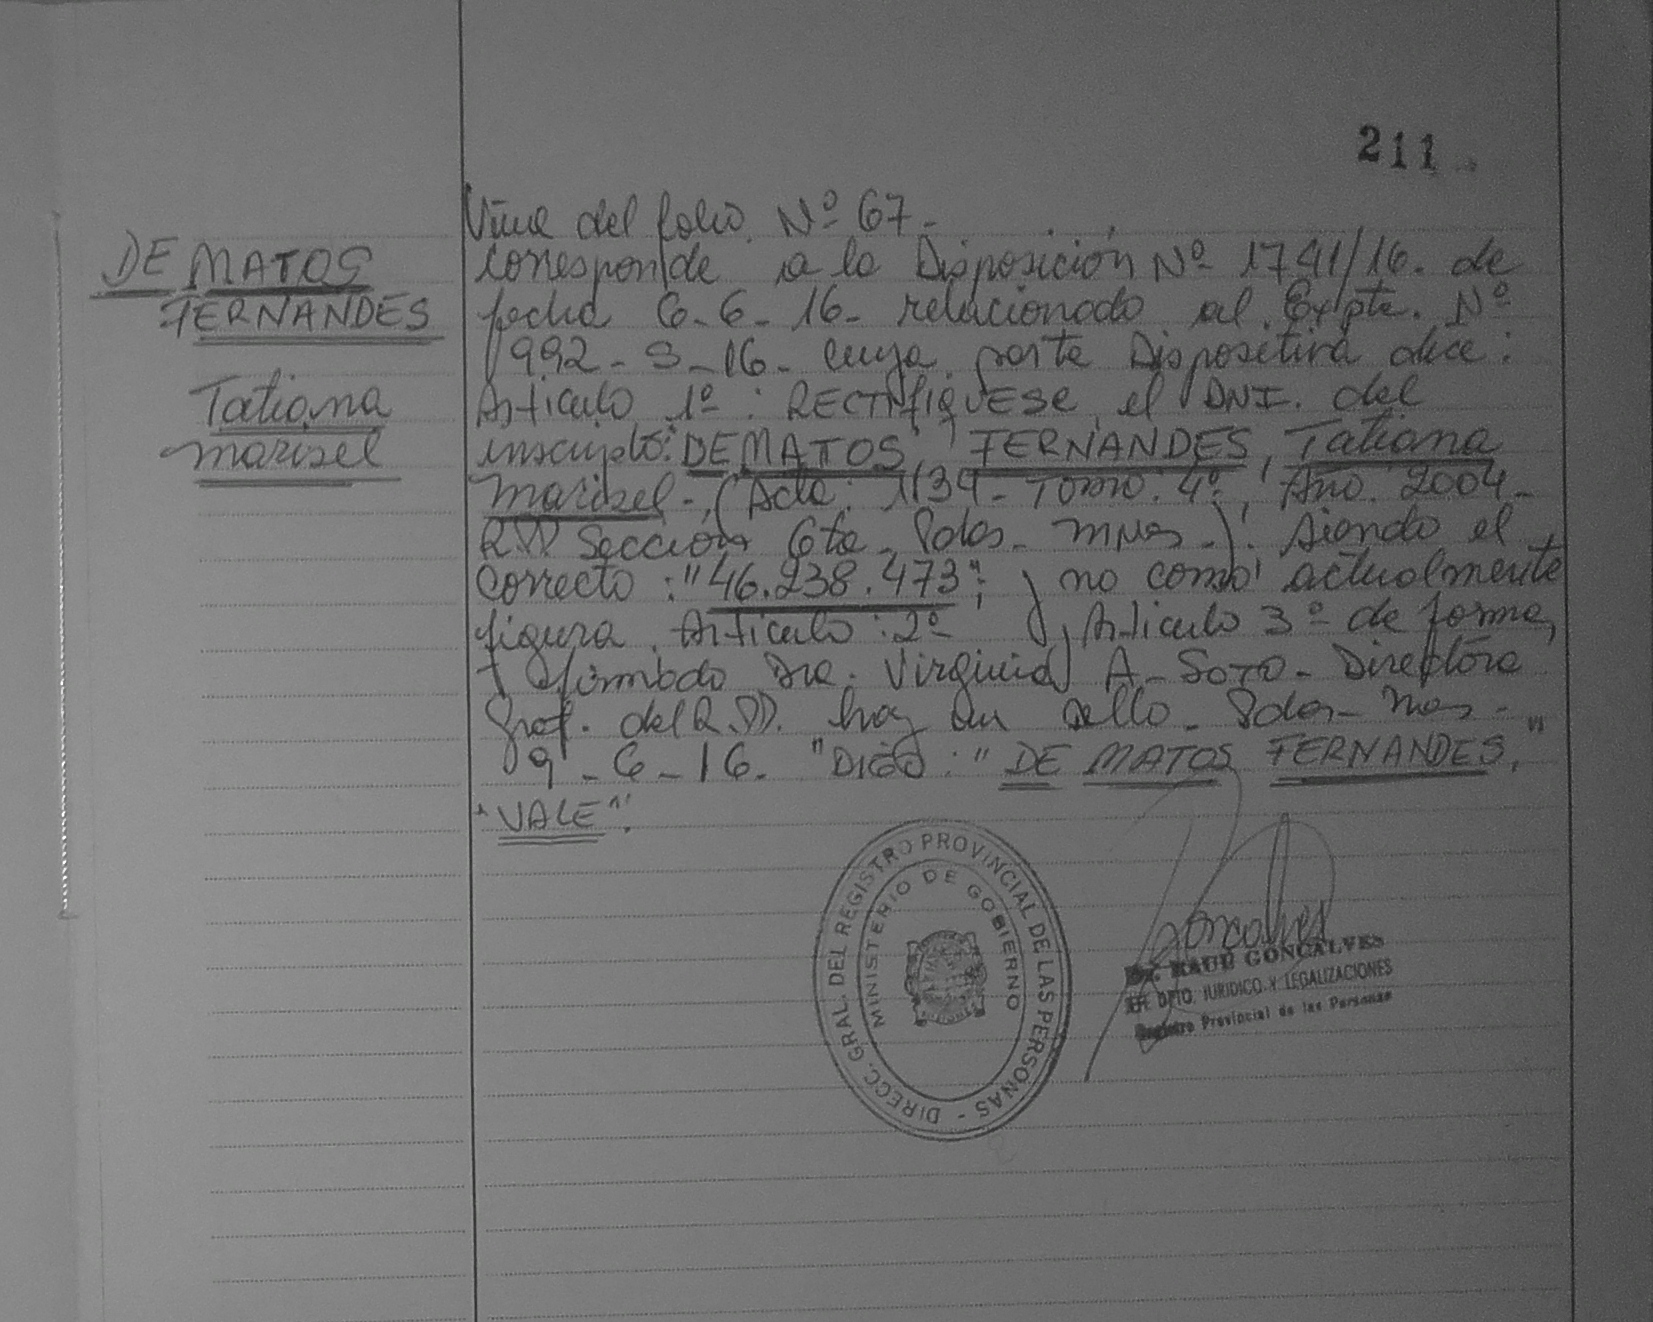 211
DE MATOS
FERNANDES
Tatiana
marisel
Viene del folio Nº 67-
corresponde a la Disposición Nº 1741/16. de
fecha 6-6-16- relacionado al Expte. Nº
992-S-16- cuya parte Dispositiva dice:
Articulo 1º: RECTIFIQUESE el DNI. del
inscripto: DE MATOS FERNANDES, Tatiana
Marisel-, (Acta: 1134- Tomo: 4º, Año 2004-
RPP Sección 6ta- Pdas- Mnes-). siendo el
correcto: "46.238.473"; y no como actualmente
figura. Articulo: 2º y Articulo 3º de forma,
firmado Dra. Virginia A- SOTO- Directora
Gral. del R.PP. hay un sello- Pdas- Mnes-
9-6-16. "Dice:" DE MATOS FERNANDES,"
"VALE".
DIRECC. GRAL. DEL REGISTRO PROVINCIAL DE LAS PERSONAS -
MINISTERIO DE GOBIERNO
Dr. RAUL GONCALVES
JEFE DPTO. JURIDICO Y LEGALIZACIONES
Registro Provincial de las Personas